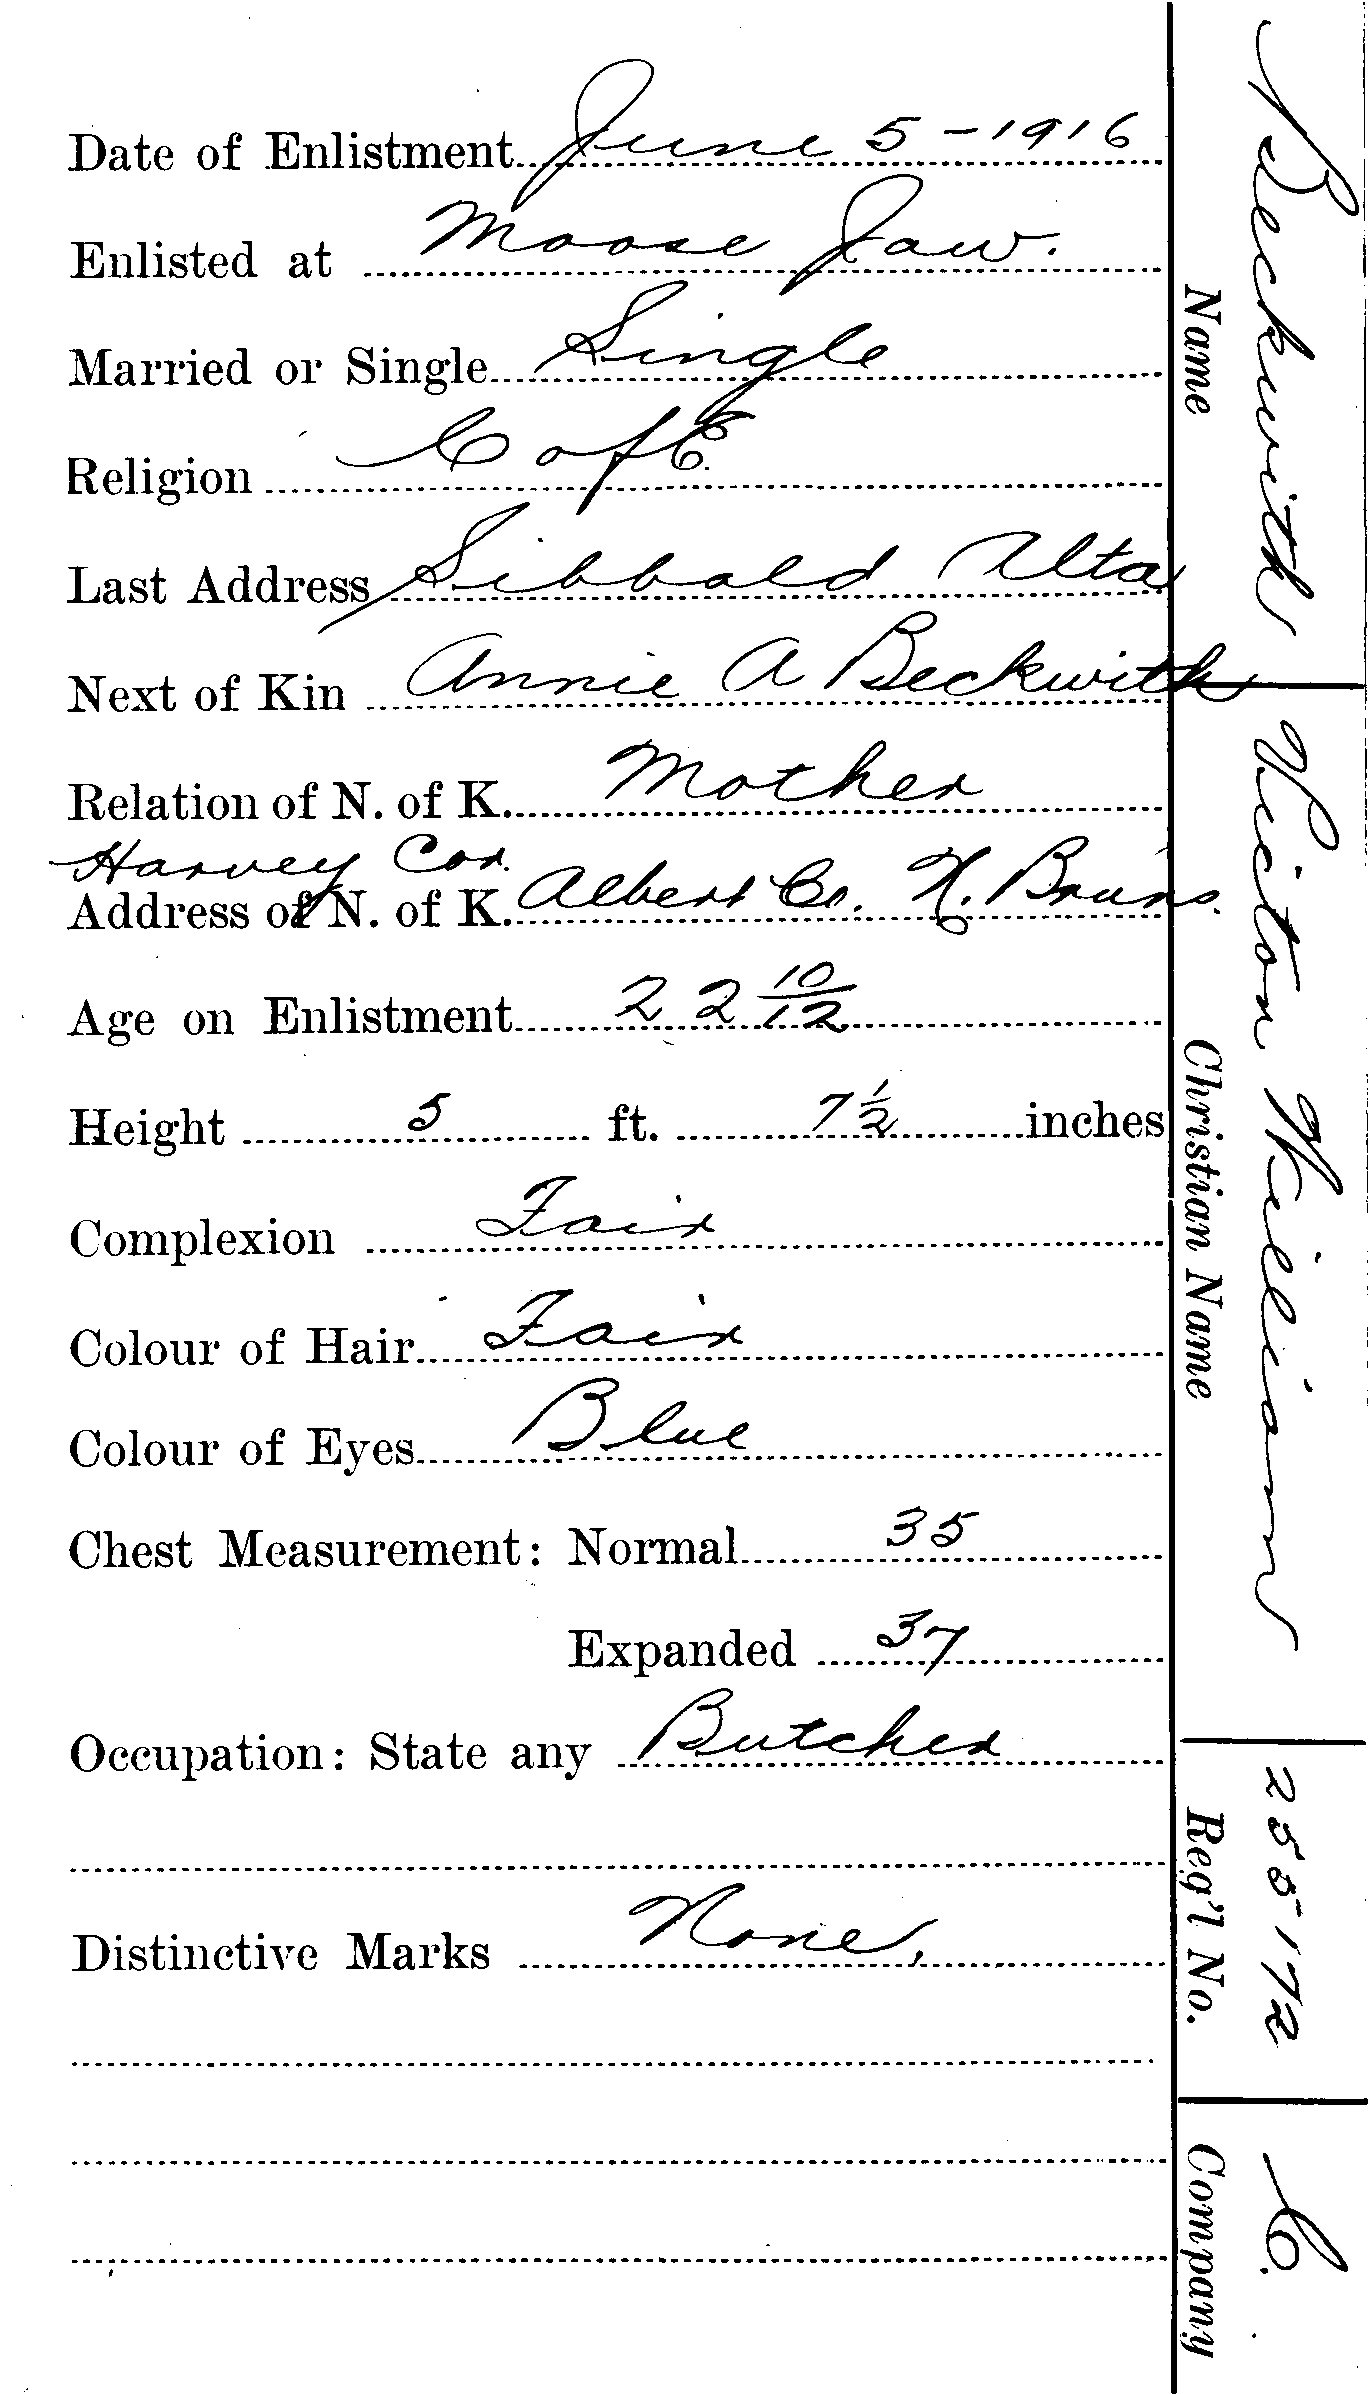 Date of Enlistment June 5 - 1916
Enlisted at Moose Jaw.
Married or Single Single
Religion C of E.
Last Address Sibbald Alta
Next of Kin Annie A Beckwith
Relation of N. of K. Mother
Harvey Cor.
Address of N. of K. Albert Co. N. Bruns.
Age on Enlistment 22 10/12
Height 5 ft. 7 1/2 inches
Complexion Fair
Colour of Hair Fair
Colour of Eyes Blue
Chest Measurement: Normal 35
Expanded 37
Occupation: State any Butcher
Distinctive Marks None.
Beckwith Victor William 255172 C.
Name Christian Name Reg'l No. Company